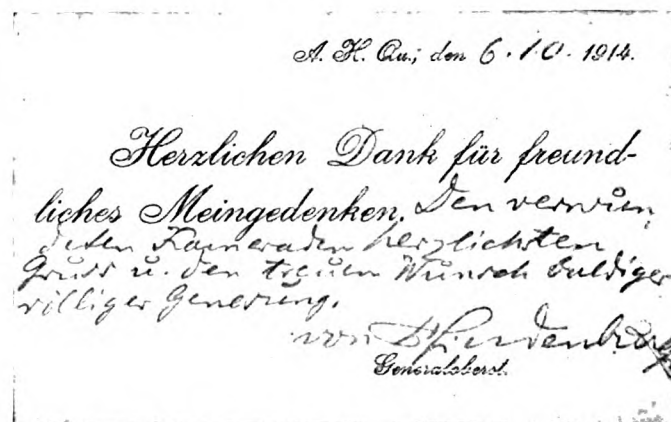 A. H. Qu., den 6.10.1914.
Herzlichen Dank für freund-
liches Meingedenken. Den verwun-
deten Kameraden herzlichsten
Gruss u. den treuen Wunsch baldiger
völliger Genesung.
von Hindenburg
Generaloberst.